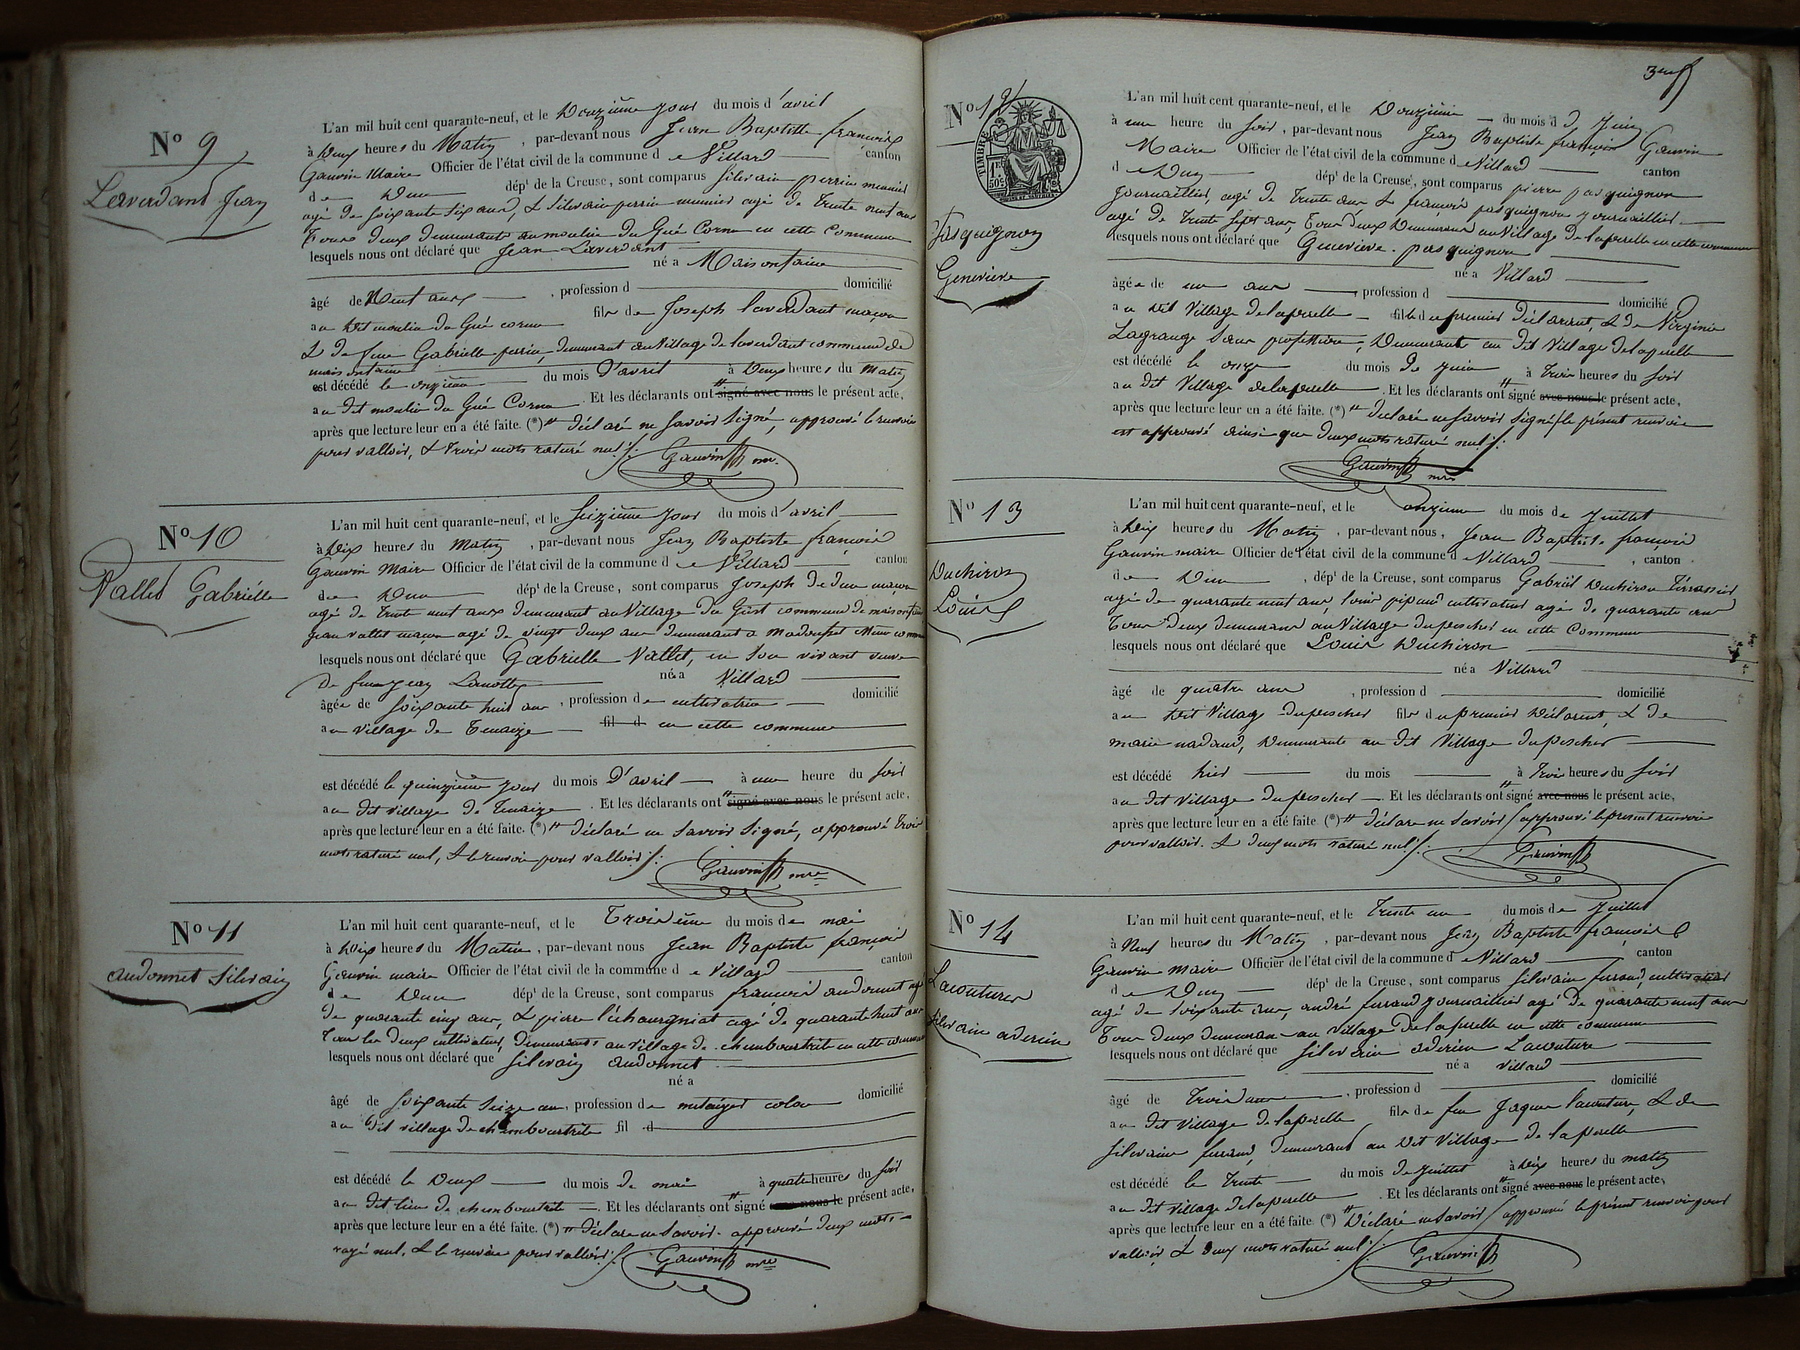 Nº 9
Laverdant Jean
L'an mil huit cent quarante-neuf, et le Douzième jour du mois d'avril
à Deux heures du Matin, par-devant nous Jean Baptiste françois
Gauvin Maire Officier de l'état civil de la commune de Villard canton
de Dun dépt de la Creuse, sont comparus Silvain perrin meunier
agé de soixante six ans, & Silvain perrin meunier agé de trente neuf ans
tous deux demeurants au moulin du Gué Cornu en cette Commune
lesquels nous ont déclaré que Jean Laverdant
né a Maisonfaine
âgé de Neuf ans, profession d domicilié
au dit moulin du Gué cornu fils de Joseph laverdant maçon
& de feue Gabrielle perrin, demeurant au Village de laverdant commune de
maisonfaine
est décédé le onzième du mois D'avril à Deux heures du Matin
au dit moulin du Gué Cornu. Et les déclarants ont signé avec nous le présent acte,
après que lecture leur en a été faite. (*) déclaré ne savoir signé, approuvé le renvoi
pour valloir, & trois mots raturé nul
Gauvin mre
Nº 10
Vallet Gabriélle
L'an mil huit cent quarante-neuf, et le Seizième jour du mois d'avril
à Dix heures du Matin, par-devant nous Jean Baptiste françois
Gauvin Maire Officier de l'état civil de la commune de Villard canton
de Dun dépt de la Creuse, sont comparus Joseph de dun maçon
agé de trente neuf ans demeurant au Village du commune de maisonfaine
jean vallet maçon agé de vingt deux ans demeurant a
lesquels nous ont déclaré que Gabrielle Vallet, en son vivant veuve
de feu jean Lamotte née a Villard
âgée de soixante huit ans, profession de cultivatrice domicilié
au village de Tenaize fil d en cette commune
est décédé le quinzième jour du mois D'avril à une heure du soir
au dit village de Tenaize. Et les déclarants ont signé avec nous le présent acte,
après que lecture leur en a été faite. (*) déclaré ne savoir signé, approuvé trois
mots raturé nul, & le renvoi pour valloir
Gauvin mre
Nº 11
audonnet Silvain
L'an mil huit cent quarante-neuf, et le Troisième du mois de mai
à Dix heures du Matin, par-devant nous Jean Baptiste françois
Gauvin maire Officier de l'état civil de la commune de Villard canton
de Dun dépt de la Creuse, sont comparus françois audonnet agé
de quarante cinq ans, & pierre l'échaugniat agé de quarante huit ans
tous les deux cultivateurs, demeurants au village de chemboustrite en cette commune
lesquels nous ont déclaré que silvain audonnet
né a
âgé de soixante seize ans, profession de métaiyer colon domicilié
au dit village de chemboustrite fil d
est décédé le Deux du mois de mai à quatre heures du soir
au dit lieu de chemboustrit. Et les déclarants ont signé avec nous le présent acte,
après que lecture leur en a été faite. (*) déclare ne savoir. approuvé deux mots
rayé nul, & le renvoi pour valloir
Gauvin mre
3me
Nº 12
TIMBRE
1F. 50c.
Pasquignon
Geneviève
L'an mil huit cent quarante-neuf, et le Douzième du mois d Juin
à une heure du soir, par-devant nous Jean Baptiste françois Gauvin
Maire Officier de l'état civil de la commune de Villard canton
de Dun dépt de la Creuse, sont comparus pierre pasquignon
journaillier, agé de trente ans & françois pasquignon journaillier
agé de trente sept ans, tous deux Demeurans au Village de laperelle en cette commune
lesquels nous ont déclaré que Geneviève pasquignon
née a Villard
âgée de un ans, profession d domicilié
au dit Village de laperelle fille du premier déclarant, & de Virginie
Lagrange Sans profession, Demeurants au dit Village de laperelle
est décédé le onze du mois de juin à trois heures du soir
au dit Village de laperelle. Et les déclarants ont signé avec nous le présent acte,
après que lecture leur en a été faite. (*) déclaré ne savoir signé / le présent renvoi
est approuvé ainsi que deux mots raturé nul
Gauvin mre
Nº 13
Duchiron
Louis
L'an mil huit cent quarante-neuf, et le onzième du mois de Juillet
à Dix heures du Matin, par-devant nous, Jean Baptiste françois
Gauvin maire Officier de l'état civil de la commune de Villard, canton
de Dun, dépt de la Creuse, sont comparus Gabriel Duchiron Terrassier
agé de quarante neuf ans, louis pipaud cultivateur agé de quarante ans
tous deux demeurans au Village du pescher en cette Commune
lesquels nous ont déclaré que Louis Duchiron
né a Villard
âgé de quatre ans, profession d domicilié
au dit Village du pescher fils du premier Déclarent, & de
marie nadaud, Demeurante au dit Village du pescher
est décédé hier du mois à Trois heures du soir
au dit Village du pescher. Et les déclarants ont signé avec nous le présent acte,
après que lecture leur en a été faite. (*) déclare ne savoir / approuvé le présent renvoi
pour valloir. & deux mots raturé nul
Gauvin
Nº 14
Lacouture
Silvain aderien
L'an mil huit cent quarante-neuf, et le Trente un du mois de Juillet
à Neuf heures du Matin, par-devant nous Jean Baptiste françois
Gauvin Maire Officier de l'état civil de la commune de Villard canton
de Dun dépt de la Creuse, sont comparus silvain furaud, cultivateur
agé de soixante ans, andré furaud journaillier agé de quarante neuf ans
tous deux demeurans au Village de laperelle en cette commune
lesquels nous ont déclaré que silvain aderien Lacouture
né a Villard
âgé de Trois ans, profession d domicilié
au dit Village de laperelle fils de feu Jaque lacouture, & de
silvaine furaud, demeurant au dit Village de laperelle
est décédé le Trente du mois de juillet à Dix heures du matin
au dit Village de laperelle. Et les déclarants ont signé avec nous le présent acte,
après que lecture leur en a été faite (*) Déclaré ne savoir / approuvé le présent renvoi pour
valloir, & deux mots raturé nul
Gauvin